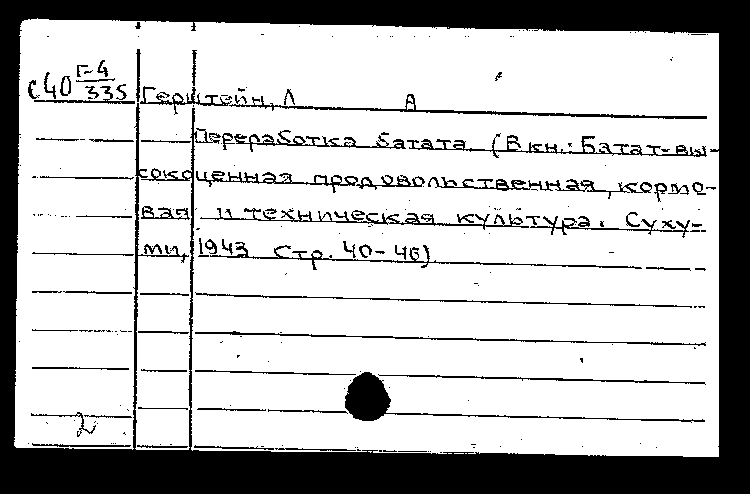 с40 Г-4/335 Герштейн, Л А
Переработка батата. (В кн.: Батат-вы-
сокоценная продовольственная, кормо-
вая и техническая культура. Суху-
ми, 1943 Стр. 40-46)
2